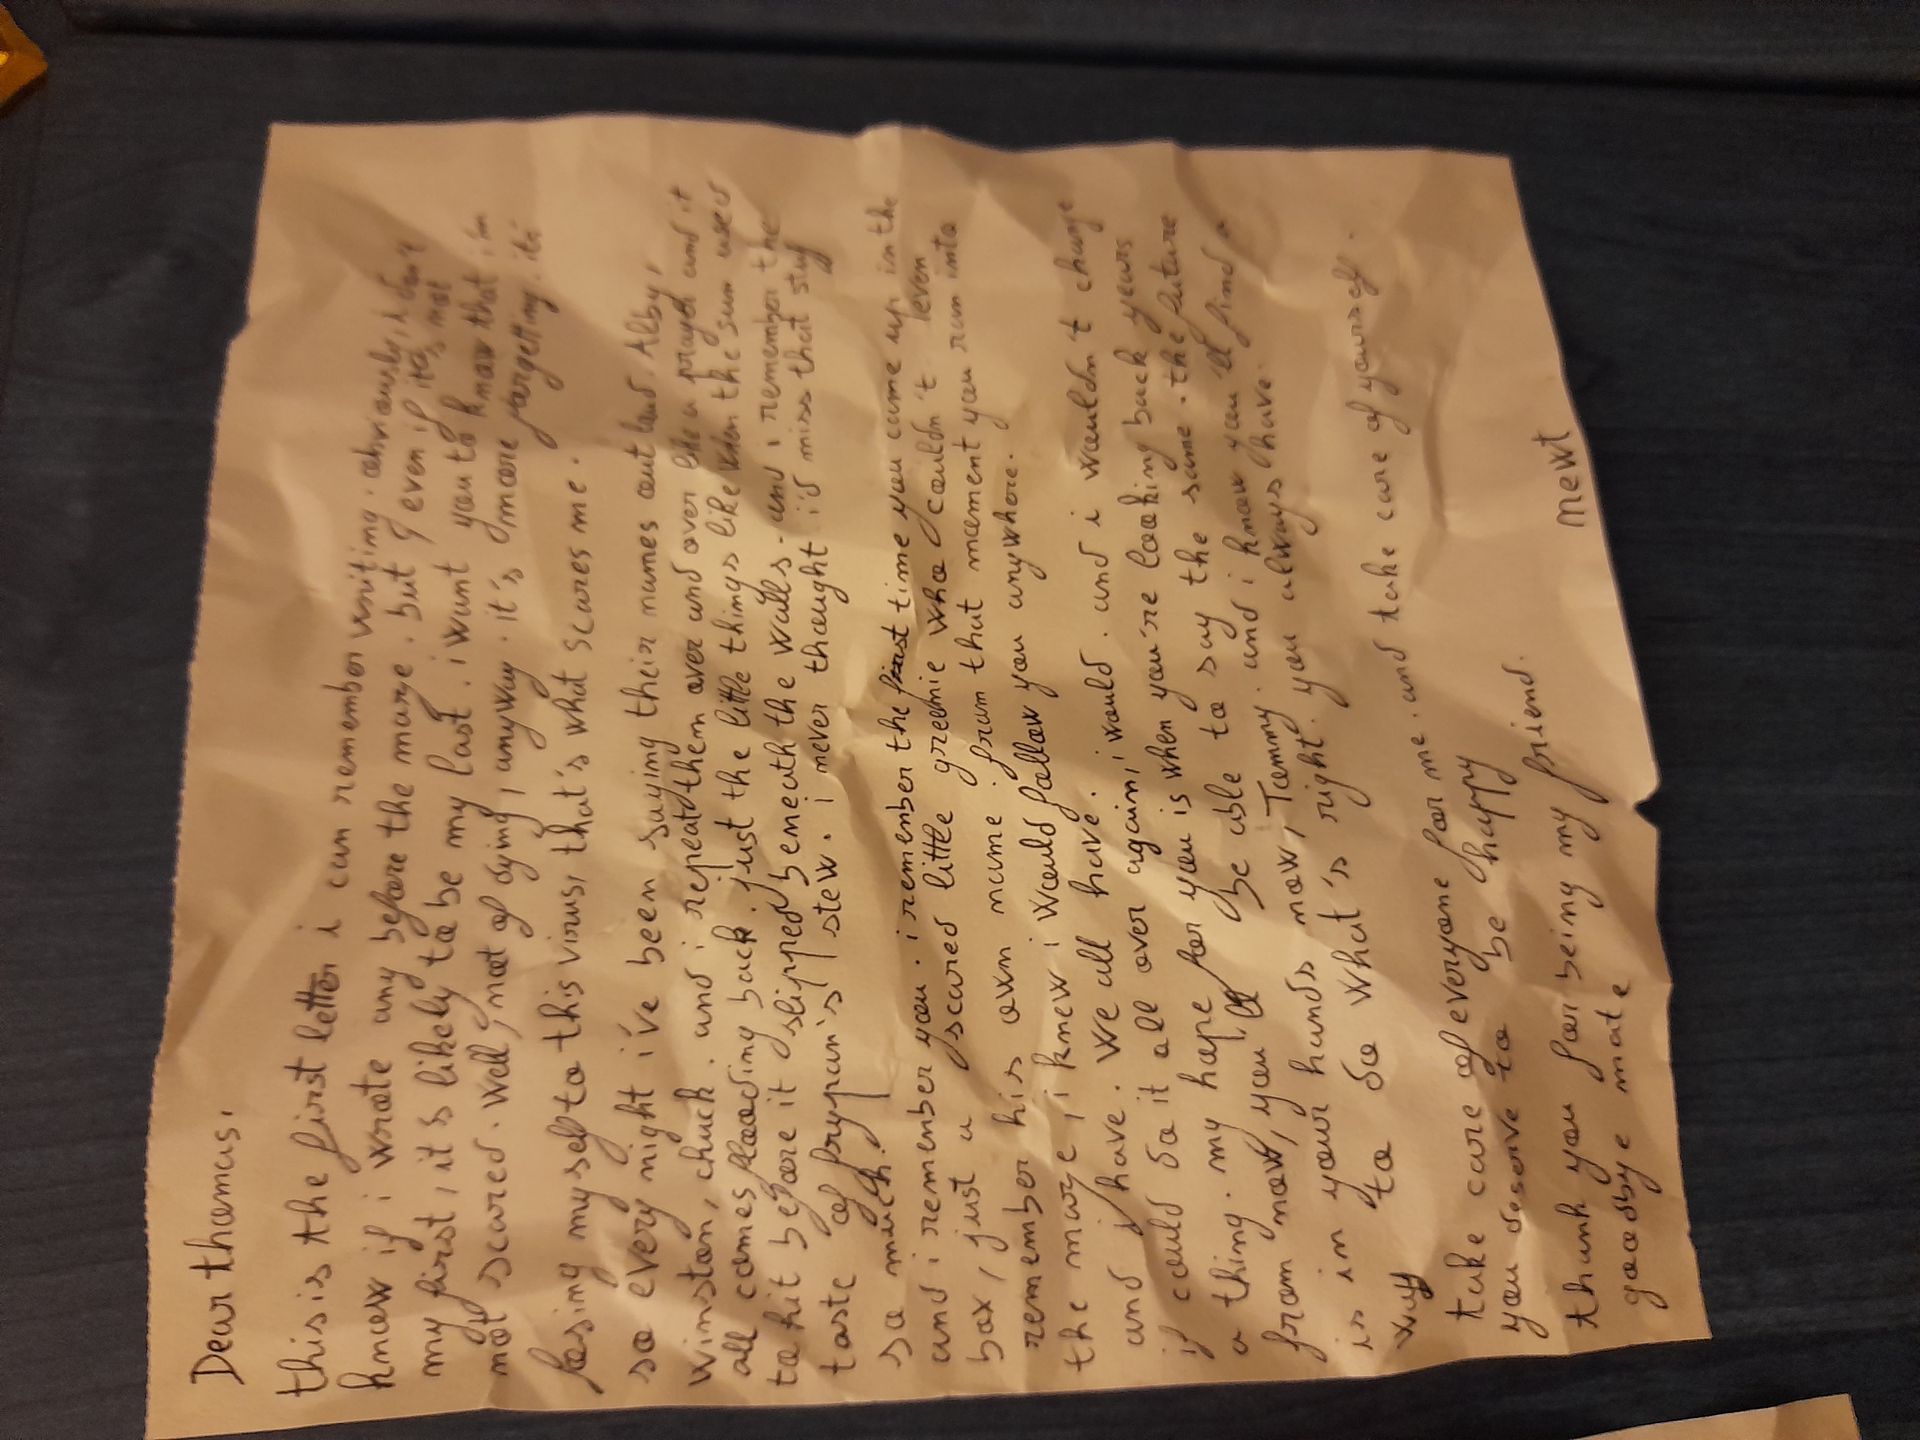 Dear thomas,
this is the first letter i can remember writing. obviously, i don't
know if i wrote any before the maze. but even if it's not
my first, it's likely to be my last. i want you to know that i'm
not scared. well, not of dying, anyway. it's more forgetting. it's
losing myself to this virus, that's what scares me.
so every night i've been saying their names out loud. Alby,
winston, chuck. and i repeat them over and over like a prayer and it
all comes flooding back. just the little things like when the sun used
to hit before it slipped beneath the walls. and i remember the
taste of frypan's stew. i never thought i'd miss that stuf
so much.
and i remember you. i remember the first time you came up in the
box, just a scared little greenie who couldn't even
remember his own name. from that moment you ran into
the maze, i knew i would follow you anywhere.
and i have. we all have. and i wouldn't change
if could do it all over again, i would. and i wouldn't change
a thing. my hope for you is when you're looking back years
from now, you'll be able to say the same. the future
is in your hands now, Tommy. and i know you'll find a
way to do what's right. you always have.
take care of everyone for me. and take care of yourself.
you deserve to be happy
thank you for being my friend.
goodbye mate
newt